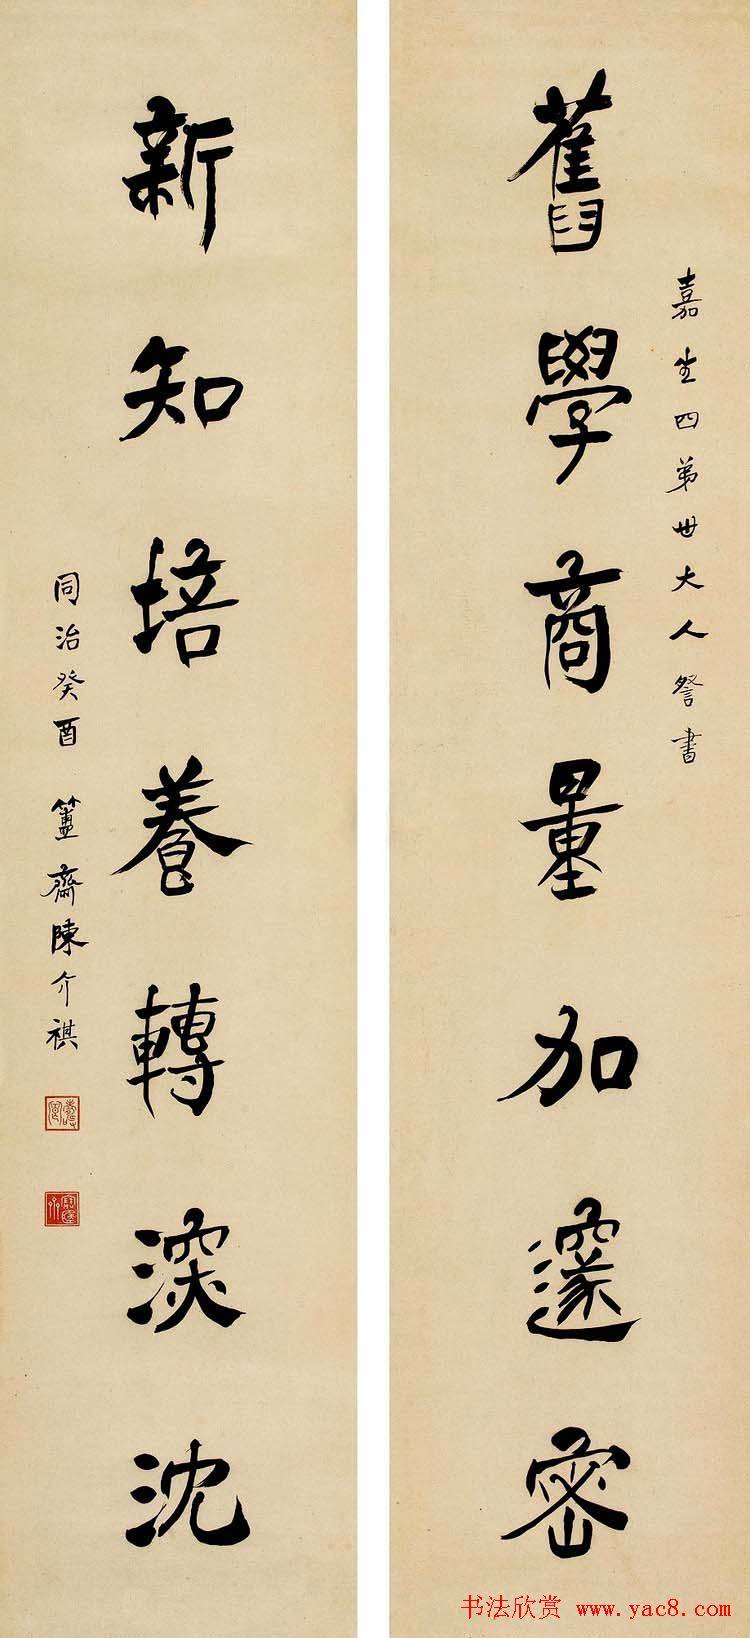 嘉生四弟世大人詧書
舊學商量加邃密
新知培養轉深沈
同治癸酉 簠齋陳介祺
书法欣赏 www.yac8.com